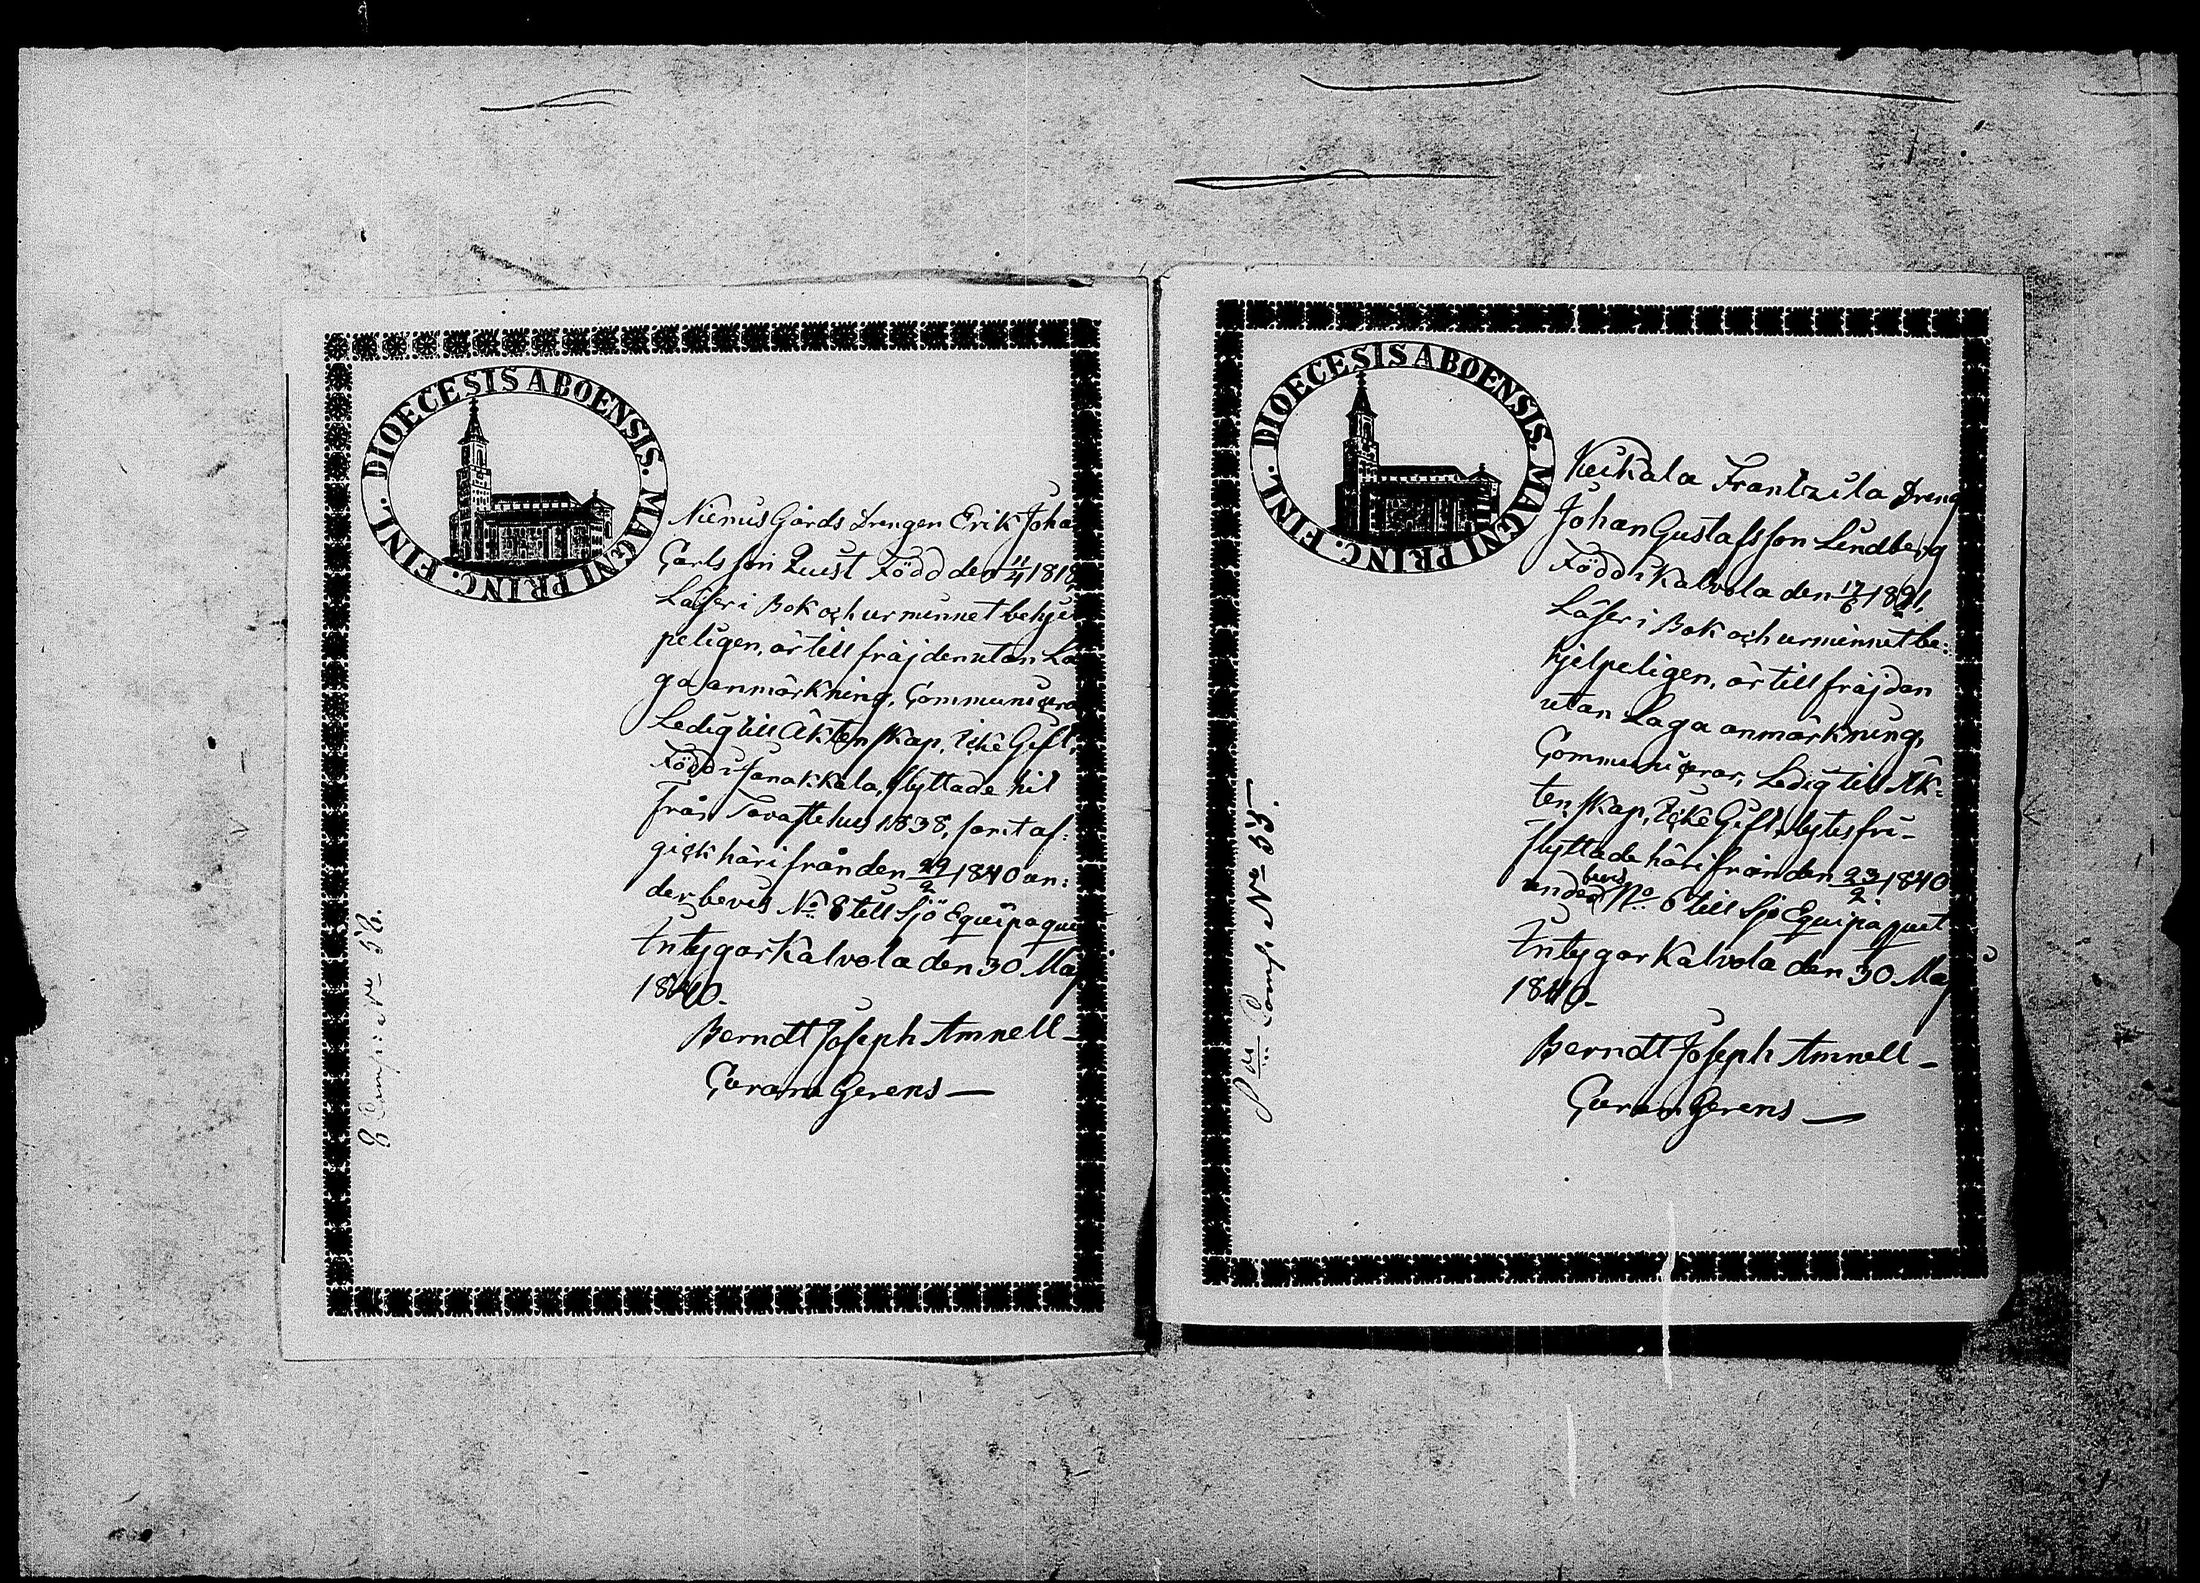 DIOECESIS ABOENSIS. MAGNI PRINC. FINL.
Niemis Gårds Drengen Erik Joha
Carlsson Quist Född den 11/4 1818,
Läser i Bok och ur minnet behjel
peligen, är till fräjden utan La
ga anmärkning, Communicerar
Ledig till Äktenskap, Icke Gift,
Född i Janakkala, flyttade hit
från Tavastehus 1838, samt af:
gick härifrån den 29/2 1840 un:
der bevis No 8 till Sjö Equipaquet
Intygar Kalvola den 30 Maj
1840.
Berndt Joseph Amnell
8 Comp: No 58.
DIOECESIS ABOENSIS. MAGNI PRINC. FINL.
Keikala Frantzila Dreng
Johan Gustafsson Lindberg
Född i Kalvola den 17/6 1821,
Läser i Bok och ur minnet be:
hjelpeligen, är till fräjden
utan Laga anmärkning,
Communicerar, Ledig till Äk:
tenskap, Icke Gift, lytesfri
flyttade härifrån den 23/2 1840
under bevis No 6 till Sjö Equipaquet
Intygar Kalvola den 30 Maj
1840.
Berndt Joseph Amnell
Comp. No 55.